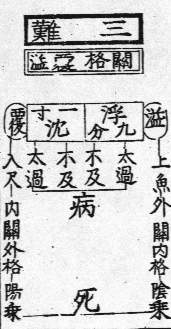 三難
關格覆溢
溢
上魚外關內格陰乘
九分浮
一寸沈
太過
不及
不及
太過
病
死
覆
入尺內關外格陽乘